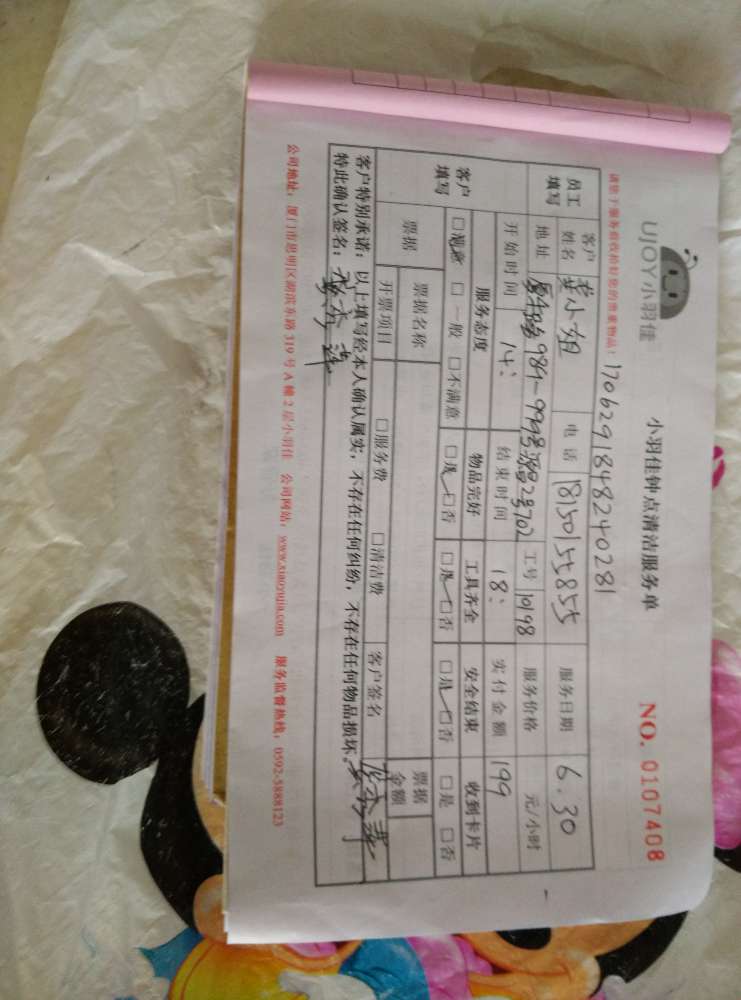 UJOY小羽佳
小羽佳钟点清洁服务单
NO. 0107408
请您于服务前收拾好您的贵重物品!
1706291848240281
员工填写
客户姓名
小姐
电话
18150155855
服务日期
6.30
地址
984-999号
2号702
工号
10198
服务价格
元/小时
开始时间
14:
结束时间
18:
实付金额
199
客户填写
服务态度
物品完好
工具齐全
安全结束
收到卡片
□满意 □一般 □不满意
□是 □否
□是 □否
□是 □否
□是 □否
票据
票据名称
票据金额
开票项目
□服务费 □清洁费
客户签名
客户特别承诺:以上填写经本人确认属实,不存在任何纠纷,不存在任何物品损坏。
特此确认签名:
公司地址:厦门市思明区湖滨东路319号A幢2层小羽佳 公司网站:www.xiaoyujia.com 服务监督热线:0592-5888123